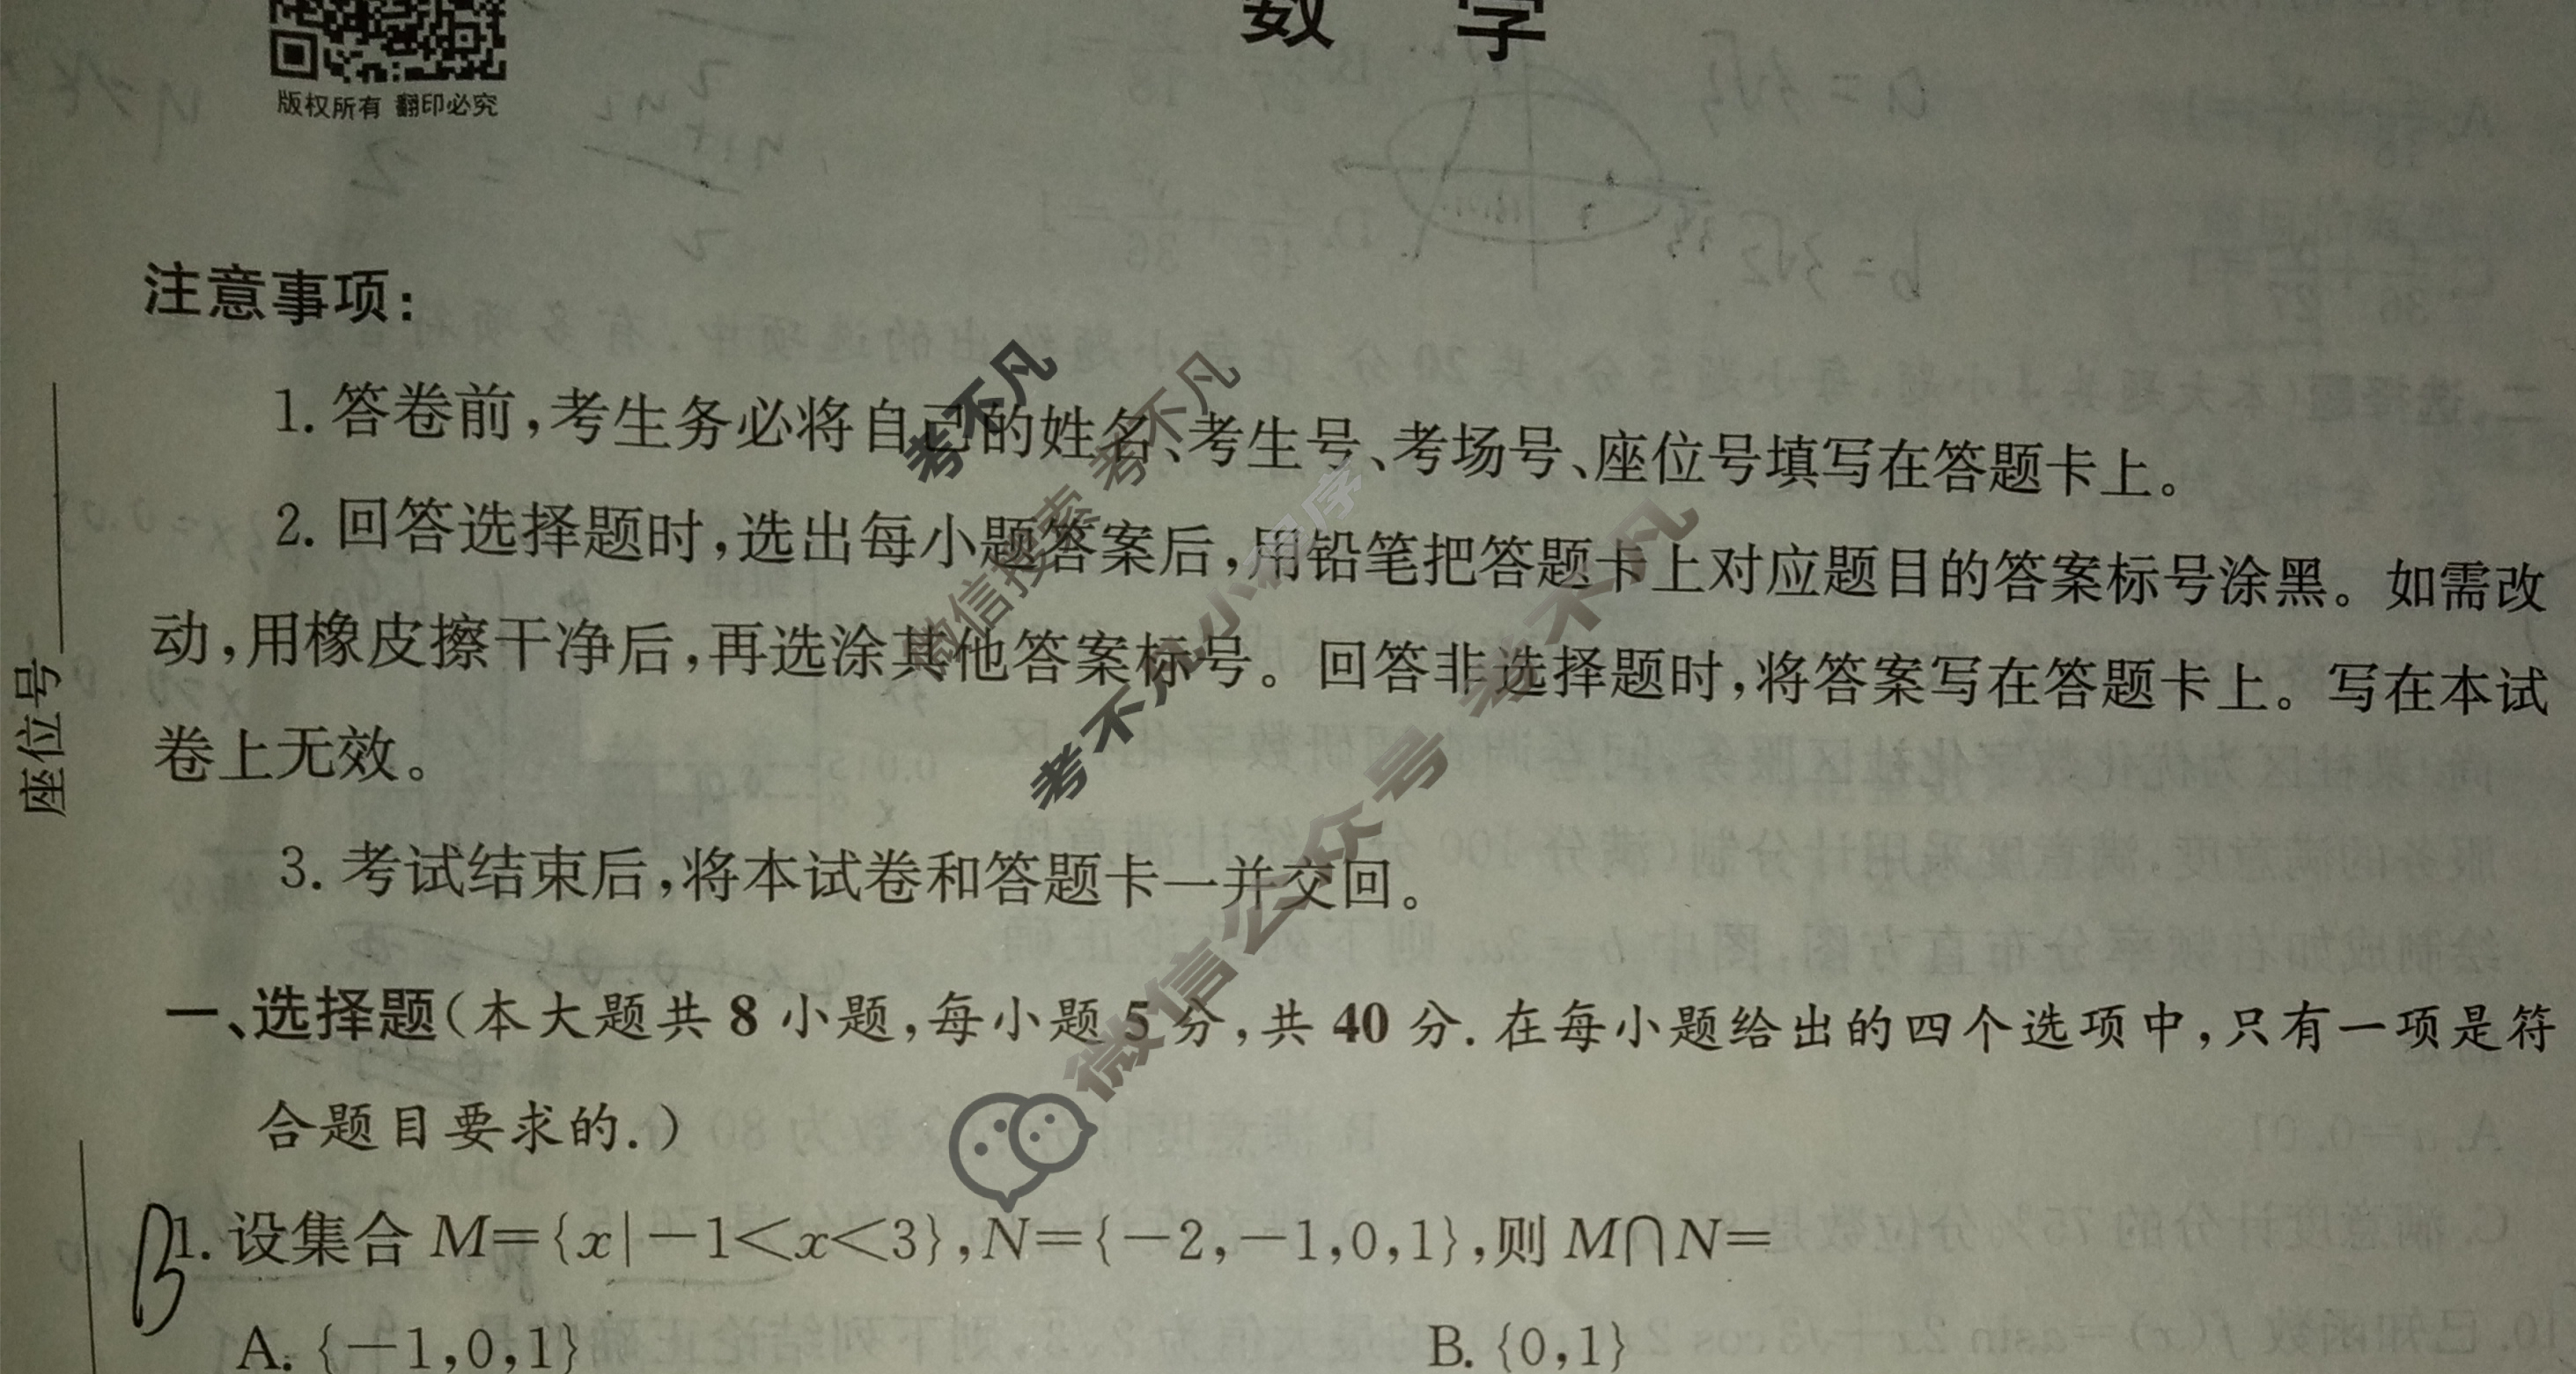 数 学
版权所有 翻印必究
注意事项：
1. 答卷前，考生务必将自己的姓名、考生号、考场号、座位号填写在答题卡上。
2. 回答选择题时，选出每小题答案后，用铅笔把答题卡上对应题目的答案标号涂黑。如需改
动，用橡皮擦干净后，再选涂其他答案标号。回答非选择题时，将答案写在答题卡上。写在本试
卷上无效。
3. 考试结束后，将本试卷和答题卡一并交回。
座位号
一、选择题（本大题共 8 小题，每小题 5 分，共 40 分. 在每小题给出的四个选项中，只有一项是符
合题目要求的.）
B
1. 设集合 M={x|-1<x<3},N={-2,-1,0,1},则 M∩N=
A. {-1,0,1}
B. {0,1}
考不凡
微信搜索 考不凡
考不凡小程序
微信公众号 考不凡